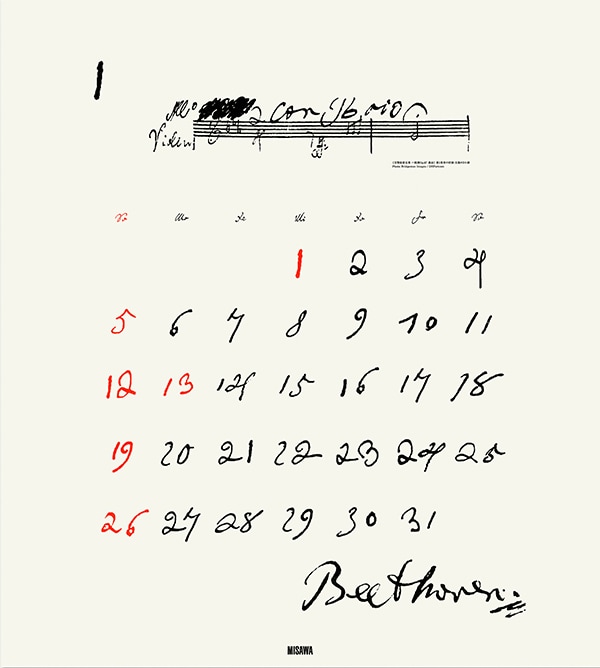 1
All° con brio
Violini
Photo: Bridgeman Images / DNPartcom
Mo Mi Fr
1 2 3 4
5 6 7 8 9 10 11
12 13 14 15 16 17 18
19 20 21 22 23 24 25
26 27 28 29 30 31
Beethoven
MISAWA